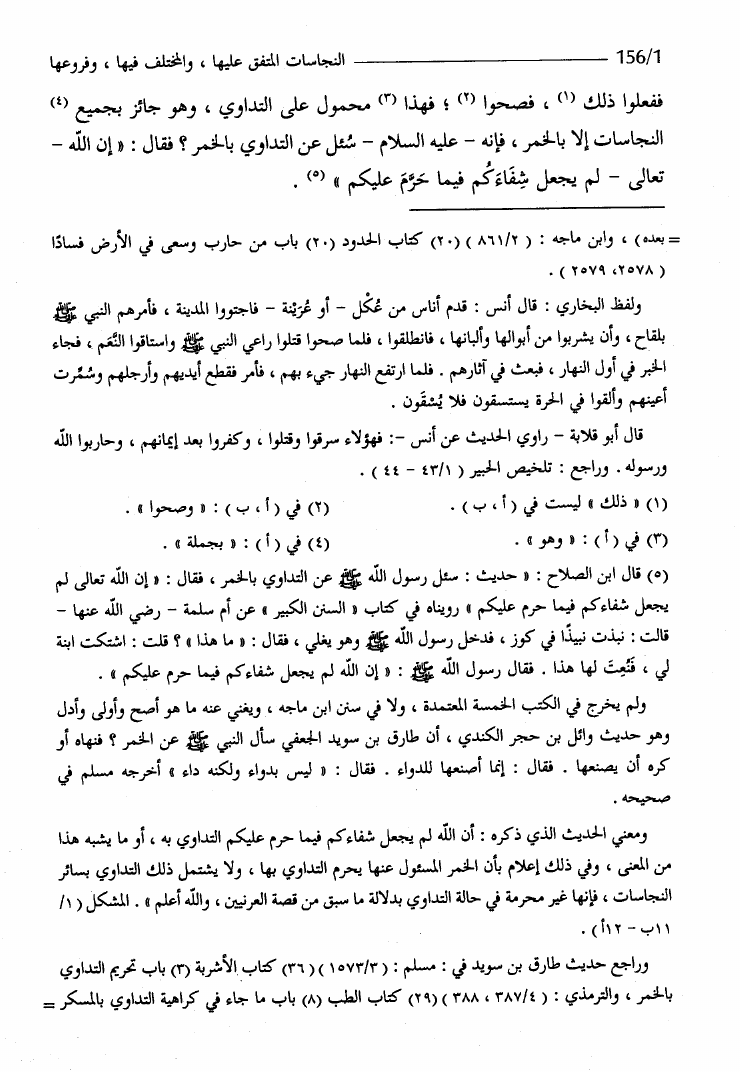 156/1 ــــــــــــــــــــــــ النجاسات المتفق عليها ، والمختلف فيها ، وفروعها
ففعلوا ذلك (١) ، فصحوا (٢) ؛ فهذا (٣) محمول على التداوي ، وهو جائز بجميع (٤)
النجاسات إلا بالخمر ، فإنه – عليه السلام – سُئل عن التداوي بالخمر ؟ فقال : « إن الله –
تعالى – لم يجعل شِفَاءَكُم فيما حَرَّمَ عليكم » (٥) .
= بعده) ، وابن ماجه : ( ٨٦١/٢ ) (٢٠) كتاب الحدود (٢٠) باب من حارب وسعى في الأرض فسادًا
( ٢٥٧٨، ٢٥٧٩ ) .
ولفظ البخاري : قال أنس : قدم أناس من عُكْل – أو عُرَيْنة – فاجتووا المدينة ، فأمرهم النبي ﷺ
بلقاح ، وأن يشربوا من أبوالها وألبانها ، فانطلقوا ، فلما صحوا قتلوا راعي النبي ﷺ واستاقوا النَّعَم ، فجاء
الخبر في أول النهار ، فبعث في آثارهم . فلما ارتفع النهار جيء بهم ، فأمر فقطع أيديهم وأرجلهم وسُمِّرت
أعينهم وألقوا في الحرة يستسقون فلا يُسْقَون .
قال أبو قلابة – راوي الحديث عن أنس –: فهؤلاء سرقوا وقتلوا ، وكفروا بعد إيمانهم ، وحاربوا الله
ورسوله . وراجع : تلخيص الحبير ( ٤٣/١ – ٤٤ ) .
(١) « ذلك » ليست في ( أ ، ب ) . (٢) في ( أ ، ب ) : « وصحوا » .
(٣) في ( أ ) : « وهو » . (٤) في ( أ ) : « بجملة » .
(٥) قال ابن الصلاح : « حديث : سئل رسول الله ﷺ عن التداوي بالخمر ، فقال : « إن الله تعالى لم
يجعل شفاءكم فيما حرم عليكم » رويناه في كتاب « السنن الكبير » عن أم سلمة – رضي الله عنها –
قالت : نبذت نبيذًا في كوز ، فدخل رسول الله ﷺ وهو يغلي ، فقال : « ما هذا » ؟ قلت : اشتكت ابنة
لي ، فَنُعِتَ لها هذا . فقال رسول الله ﷺ : « إن الله لم يجعل شفاءكم فيما حرم عليكم » .
ولم يخرج في الكتب الخمسة المعتمدة ، ولا في سنن ابن ماجه ، ويغني عنه ما هو أصح وأولى وأدل
وهو حديث وائل بن حجر الكندي ، أن طارق بن سويد الجعفي سأل النبي ﷺ عن الخمر ؟ فنهاه أو
كره أن يصنعها . فقال : إنما أصنعها للدواء . فقال : « ليس بدواء ولكنه داء » أخرجه مسلم في
صحيحه .
ومعني الحديث الذي ذكره : أن الله لم يجعل شفاءكم فيما حرم عليكم التداوي به ، أو ما يشبه هذا
من المعنى ، وفي ذلك إعلام بأن الخمر المسئول عنها يحرم التداوي بها ، ولا يشتمل ذلك التداوي بسائر
النجاسات ، فإنها غير محرمة في حالة التداوي بدلالة ما سبق من قصة العرنيين ، والله أعلم » . المشكل ( ١/
١١ب – ١٢أ ) .
وراجع حديث طارق بن سويد في : مسلم : ( ١٥٧٣/٣ ) (٣٦) كتاب الأشربة (٣) باب تحريم التداوي
بالخمر ، والترمذي : ( ٣٨٧/٤ ، ٣٨٨ ) (٢٩) كتاب الطب (٨) باب ما جاء في كراهية التداوي بالمسكر =